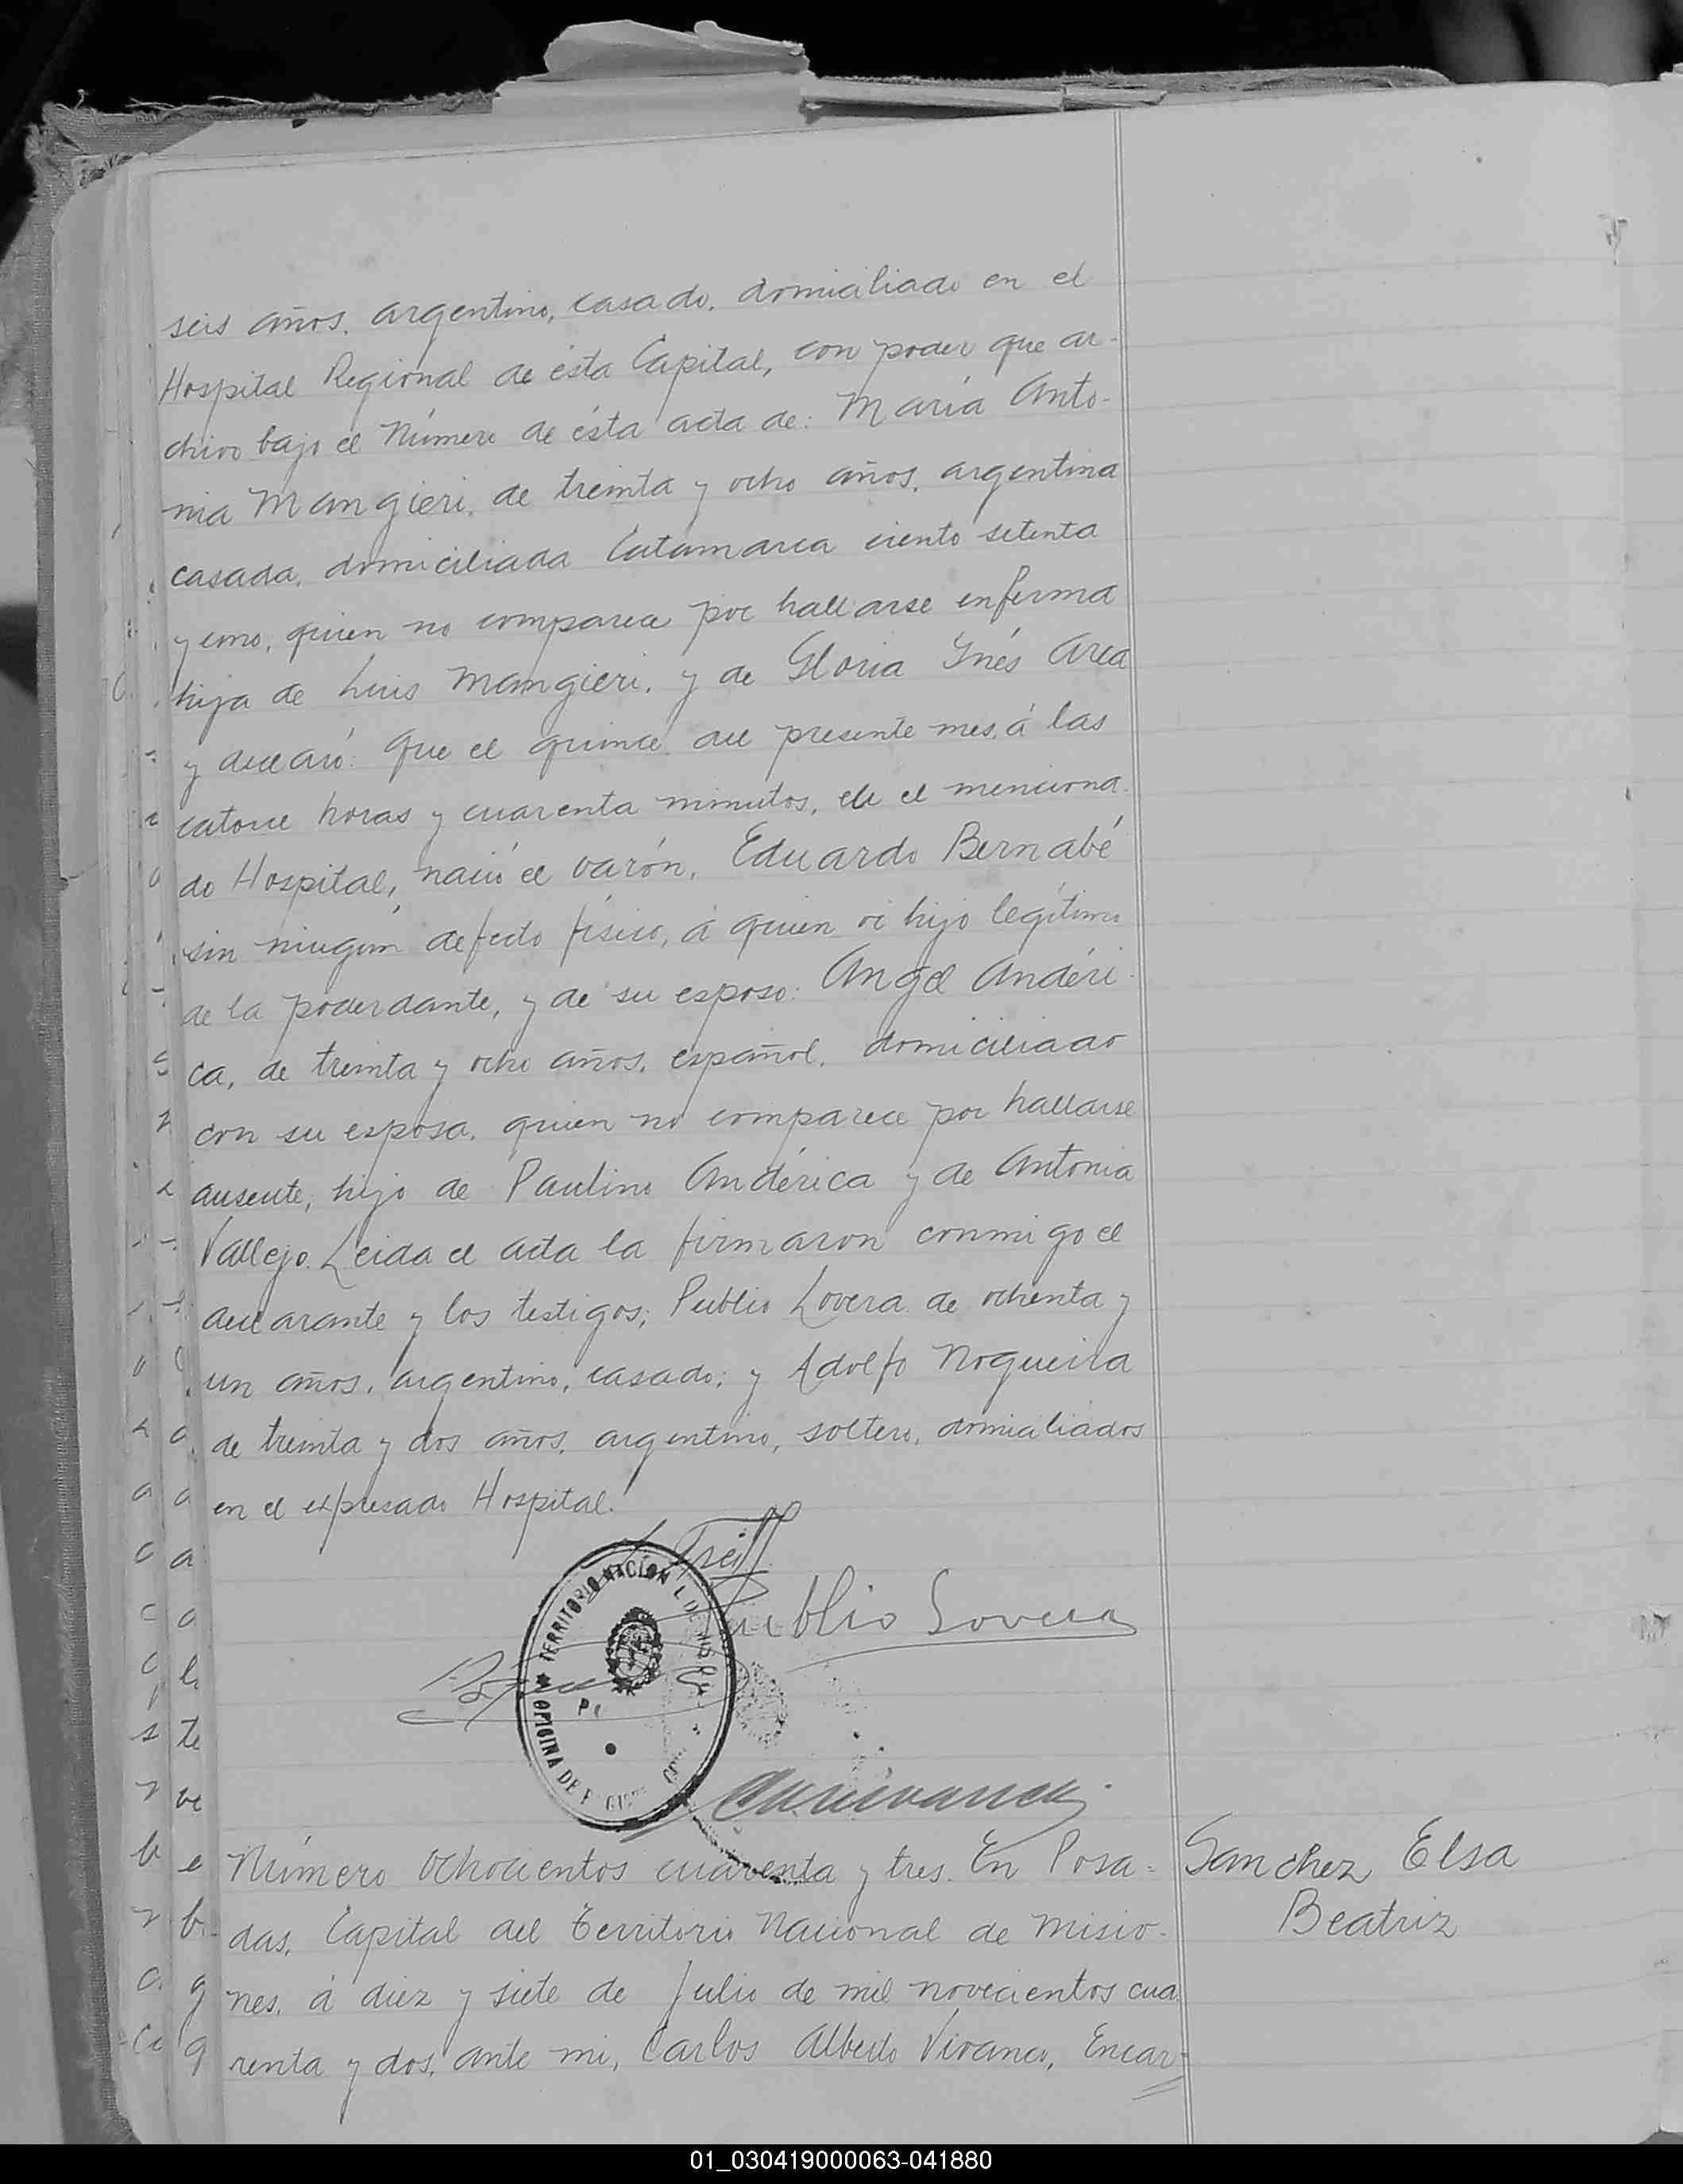 seis años, argentino, casado, domiciliado en el
Hospital Regional de ésta Capital, con poder que ar-
chivo bajo el Número de ésta acta de: María Anto-
nia Mangieri, de treinta y ocho años, argentina
casada, domiciliada Catamarca ciento setenta
y uno, quien no comparece por hallarse enferma
hija de Luis Mangieri, y de Gloria Ynés Area
y declaró: Que el quince del presente mes, á las
catorce horas y cuarenta minutos, en el menciona-
do Hospital, nació el varón, Eduardo Bernabé
sin ningún defecto físico, á quien vi hijo legítimo
de la poderdante, y de su esposo: Angel Andéri-
ca, de treinta y ocho años, español, domiciliado
con su esposa, quien no comparece por hallarse
ausente, hijo de Paulino Andérica y de Antonia
Vallejo. Leida el acta la firmaron conmigo el
declarante y los testigos; Publio Lovera de ochenta y
un años, argentino, casado; y Adolfo Nogueira
de treinta y dos años, argentino, soltero, domiciliados
en el expresado Hospital.
Publio Lovera
TERRITORIO NACIONAL DE MISIONES
OFICINA DE
Número ochocientos cuarenta y tres. En Posa=
Sanchez Elsa
Beatriz
das, Capital del Territorio Nacional de Misio-
nes, á diez y siete de Julio de mil novecientos cua
renta y dos, ante mi, Carlos Alberto Vivanco, Encar=
01_030419000063-041880